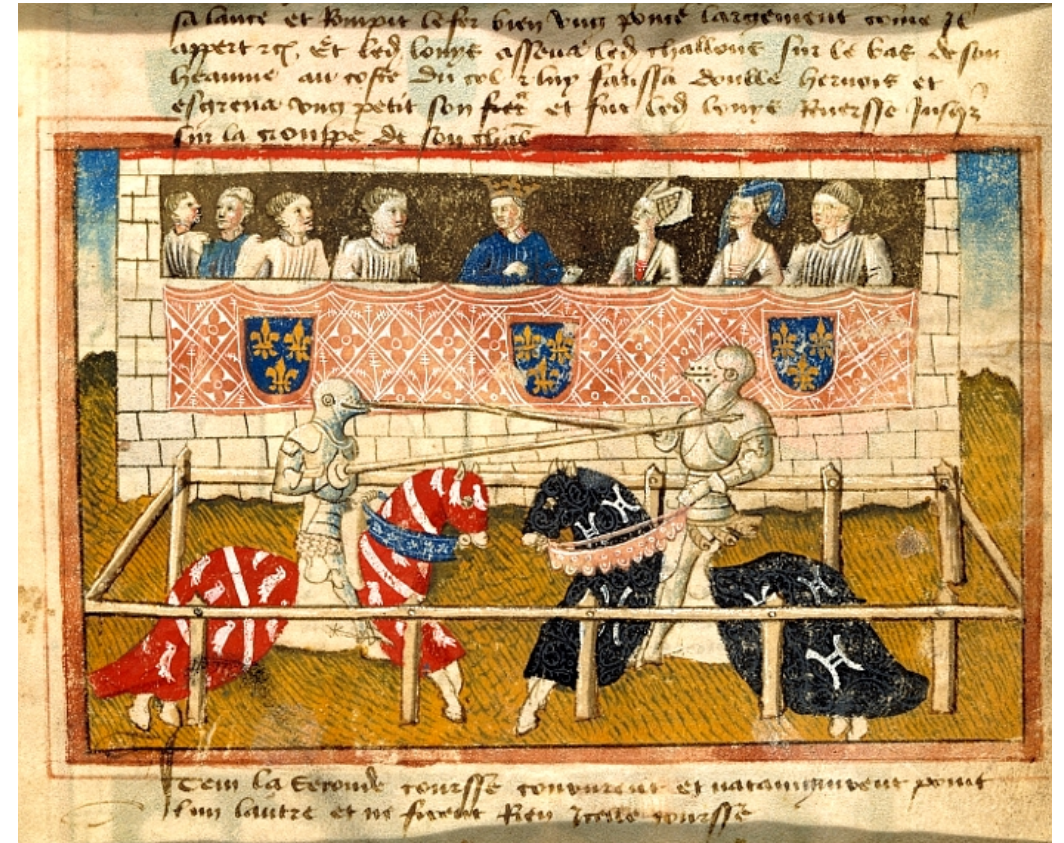 sa lance et Rompit le fer bien vng large­ment come Il
appert Et led louys assena led challons sur le bas de son
heaume au coste du col luy faussa hernois et
esgrena vng petit son fer et fut led louys Reuersse Jusqz
sur la crouppe de son chal
Item la Seconde coursse coururent et nataingnirent point
lun lautre et ne firent Rien Icelle coursse